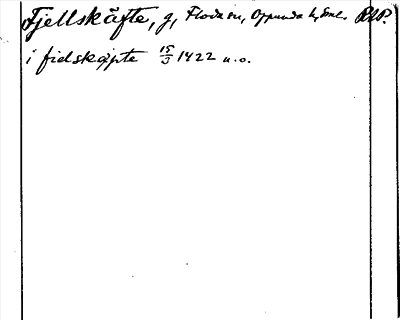 Fjellskäfte, g, Floda sn, Oppunda h, Sml. RAP.
i fidskäpte 15/3 1422 u.o.